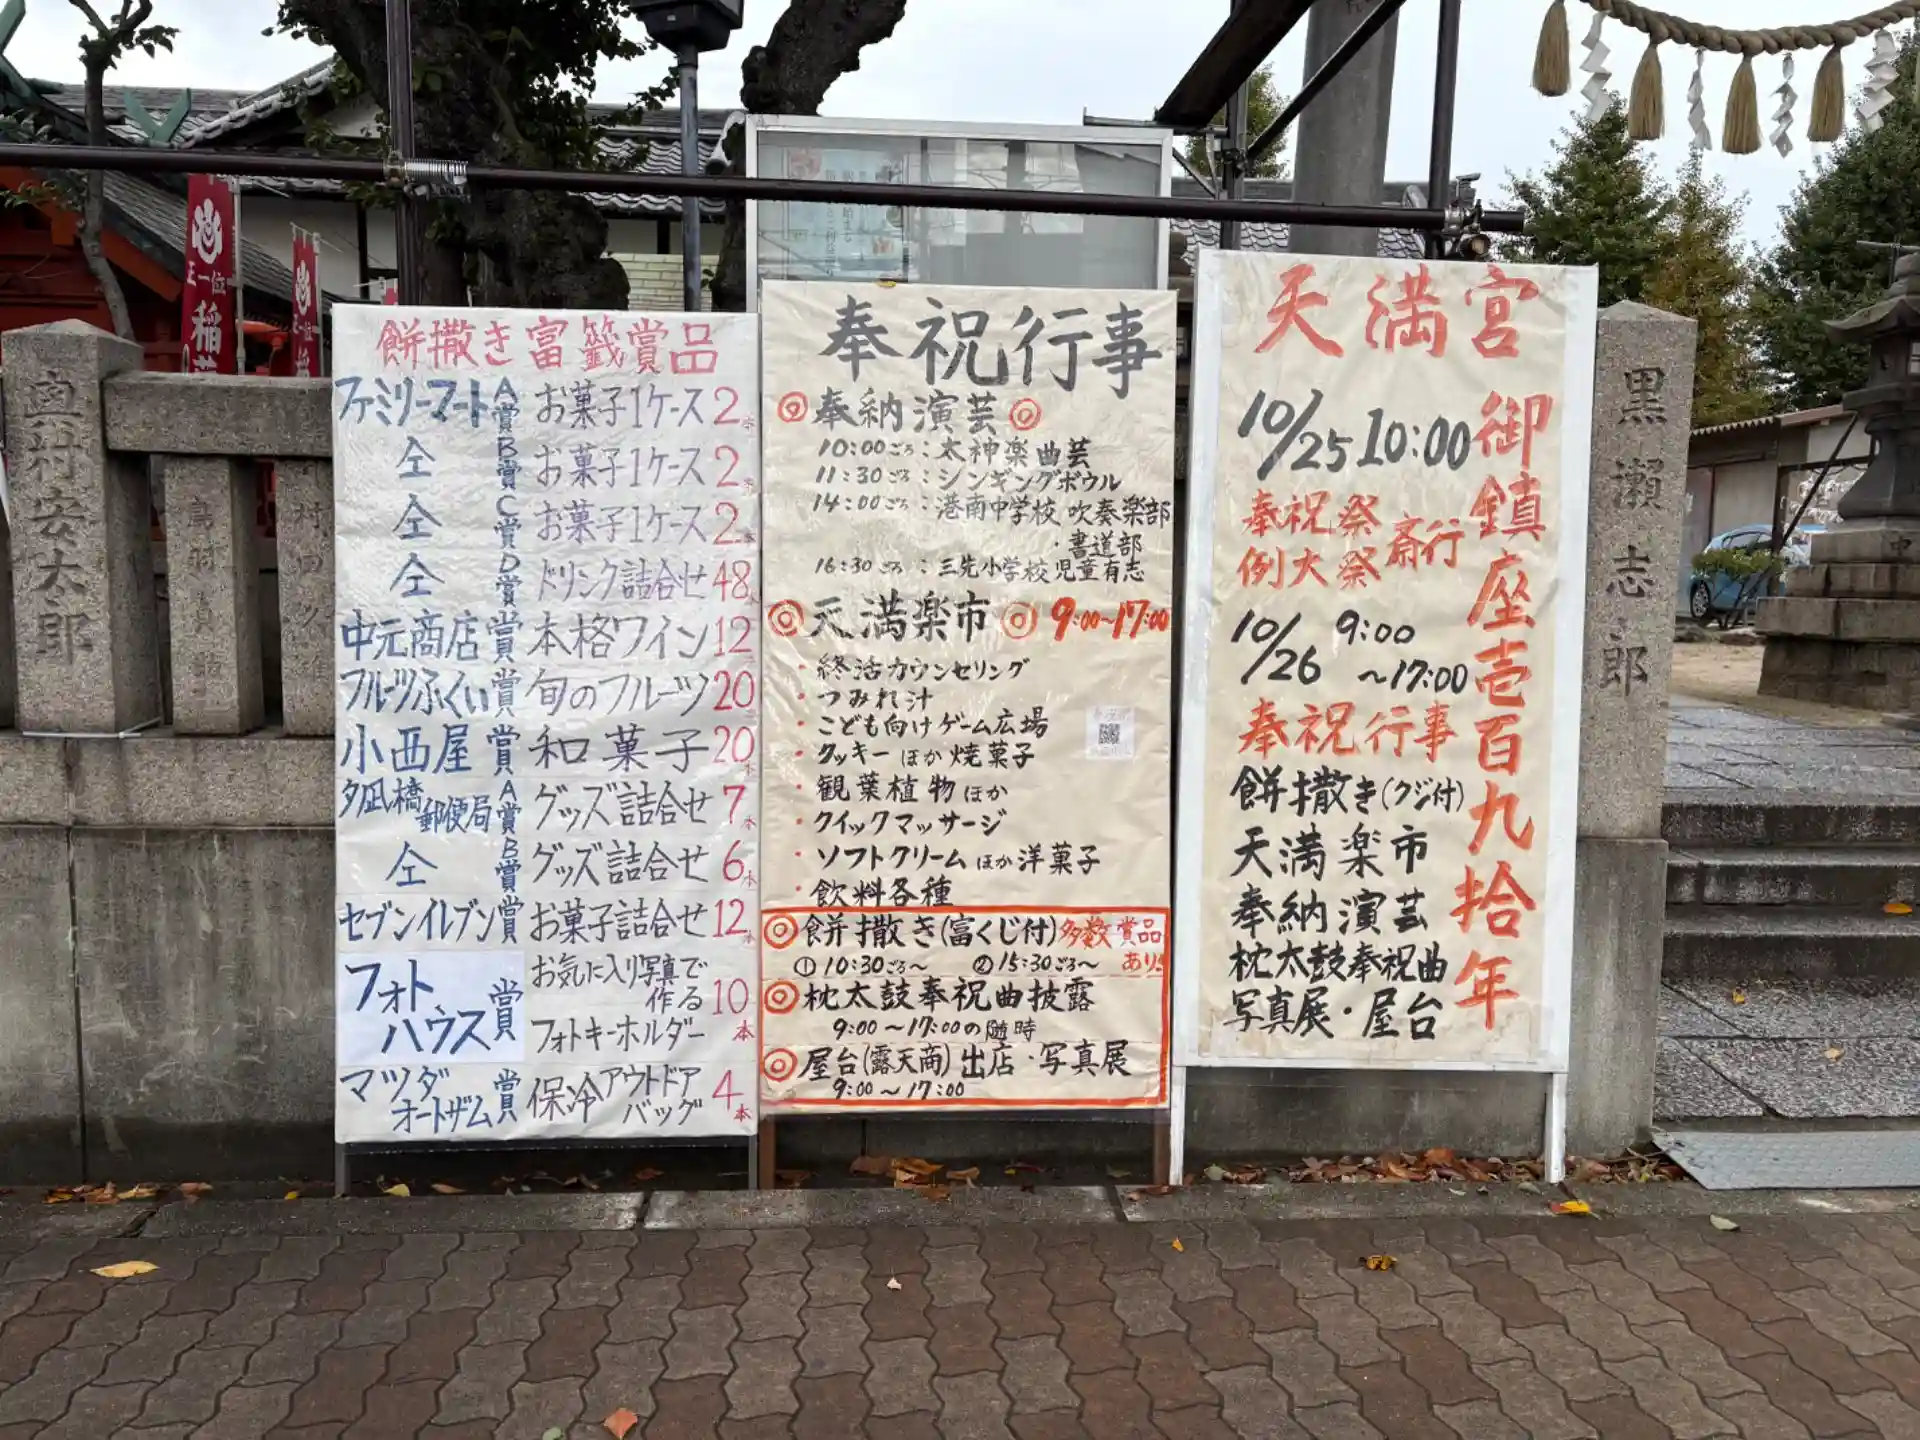 餅撒き富籤賞品
ファミリーマート A賞 お菓子1ケース 2本
仝 B賞 お菓子1ケース 2本
仝 C賞 お菓子1ケース 2本
仝 D賞 ドリンク詰合せ 48本
中元商店賞 本格ワイン 12本
フルーツふくい賞 旬のフルーツ 20本
小西屋賞 和菓子 20本
夕凪橋郵便局 A賞 グッズ詰合せ 7本
仝 B賞 グッズ詰合せ 6本
セブンイレブン賞 お菓子詰合せ 12本
フォトハウス賞 お気に入り写真で作るフォトキーホルダー 10本
マツダオートザム賞 保冷アウトドアバッグ 4本
奉祝行事
◎奉納演芸◎
10:00ごろ:太神楽曲芸
11:30ごろ:シンギングボウル
14:00ごろ:港南中学校 吹奏楽部
・書道部
16:30ごろ:三先小学校児童有志
◎天満楽市◎ 9:00~17:00
・終活カウンセリング
・つみれ汁
・こども向けゲーム広場
・クッキーほか焼菓子
・観葉植物ほか
・クイックマッサージ
・ソフトクリームほか洋菓子
・飲料各種
◎餅撒き(富くじ付)多数賞品あり
①10:30ごろ~ ②15:30ごろ~
◎枕太鼓奉祝曲披露
9:00~17:00の随時
◎屋台(露天商)出店・写真展
9:00~17:00
天満宮
御鎮座壱百九拾年
10/25 10:00
奉祝祭
例大祭 斎行
10/26 9:00
~17:00
奉祝行事
餅撒き(クジ付)
天満楽市
奉納演芸
枕太鼓奉祝曲
写真展・屋台
黒瀬志郎
正一位
稲
正一位